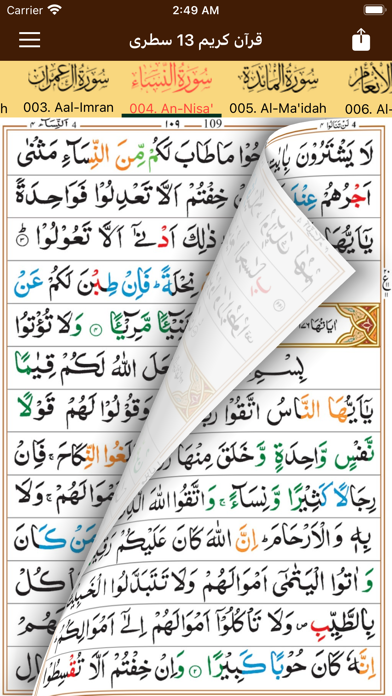 Carrier 2:49 AM
قرآن کریم 13 سطری
سورة آل عمران سورة النساء سورة المائدة الأنعام
003. Aal-Imran 004. An-Nisa' 005. Al-Ma'idah 006. Al-
4 لن تنالوا ۴ 109 ١٠٩ 4 النساء ۴
لَا يَشْتَرُوْنَ حُوْا مَا طَابَ لَكُمْ مِّنَ النِّسَآءِ مَثْنٰى
اَجْرُهُمْ عِنْدَ خِفْتُمْ اَلَّا تَعْدِلُوْا فَوَاحِدَةً
يٰٓاَيُّهَا ذٰلِكَ اَدْنٰٓى اَلَّا تَعُوْلُوْا ۳
نِحْلَةً ؕ فَاِنْ طِبْنَ لَكُمْ عَنْ
اٰيَاتُهَا ١٧٦ مَّرِيْٓـًٔا ۴ وَلَا تُؤْتُوا
بِسْمِ عَلَ اللّٰهُ لَكُمْ قِيٰمًا
يٰٓاَيُّهَا النَّاسُ اتَّقُوْا وَقُوْلُوْا لَهُمْ قَوْلًا
نَّفْسٍ وَّاحِدَةٍ وَّخَلَقَ مِنْهَا لَغُوا النِّكَاحَ ۚ فَاِنْ
رِجَالًا كَثِيْرًا وَّنِسَآءً ۚ وَاتَّقُوا اللّٰهَ مْوَالَهُمْ ۚ وَلَا
بِهٖ وَالْاَرْحَامَ ؕ اِنَّ اللّٰهَ كَانَ عَلَيْكُمْ مَنْ كَانَ
وَاٰتُوا الْيَتٰمٰٓى اَمْوَالَهُمْ وَلَا تَتَبَدَّلُوا الْخَبِيْ كُلْ
بِالطَّيِّبِ ۪ وَلَا تَاْكُلُوْٓا اَمْوَالَهُمْ اِلٰٓى اَمْوَالِكُمْ هِمْ
اِنَّهٗ كَانَ حُوْبًا كَبِيْرًا ۲ وَاِنْ خِفْتُمْ اَلَّا تُقْسِطُوْا ال